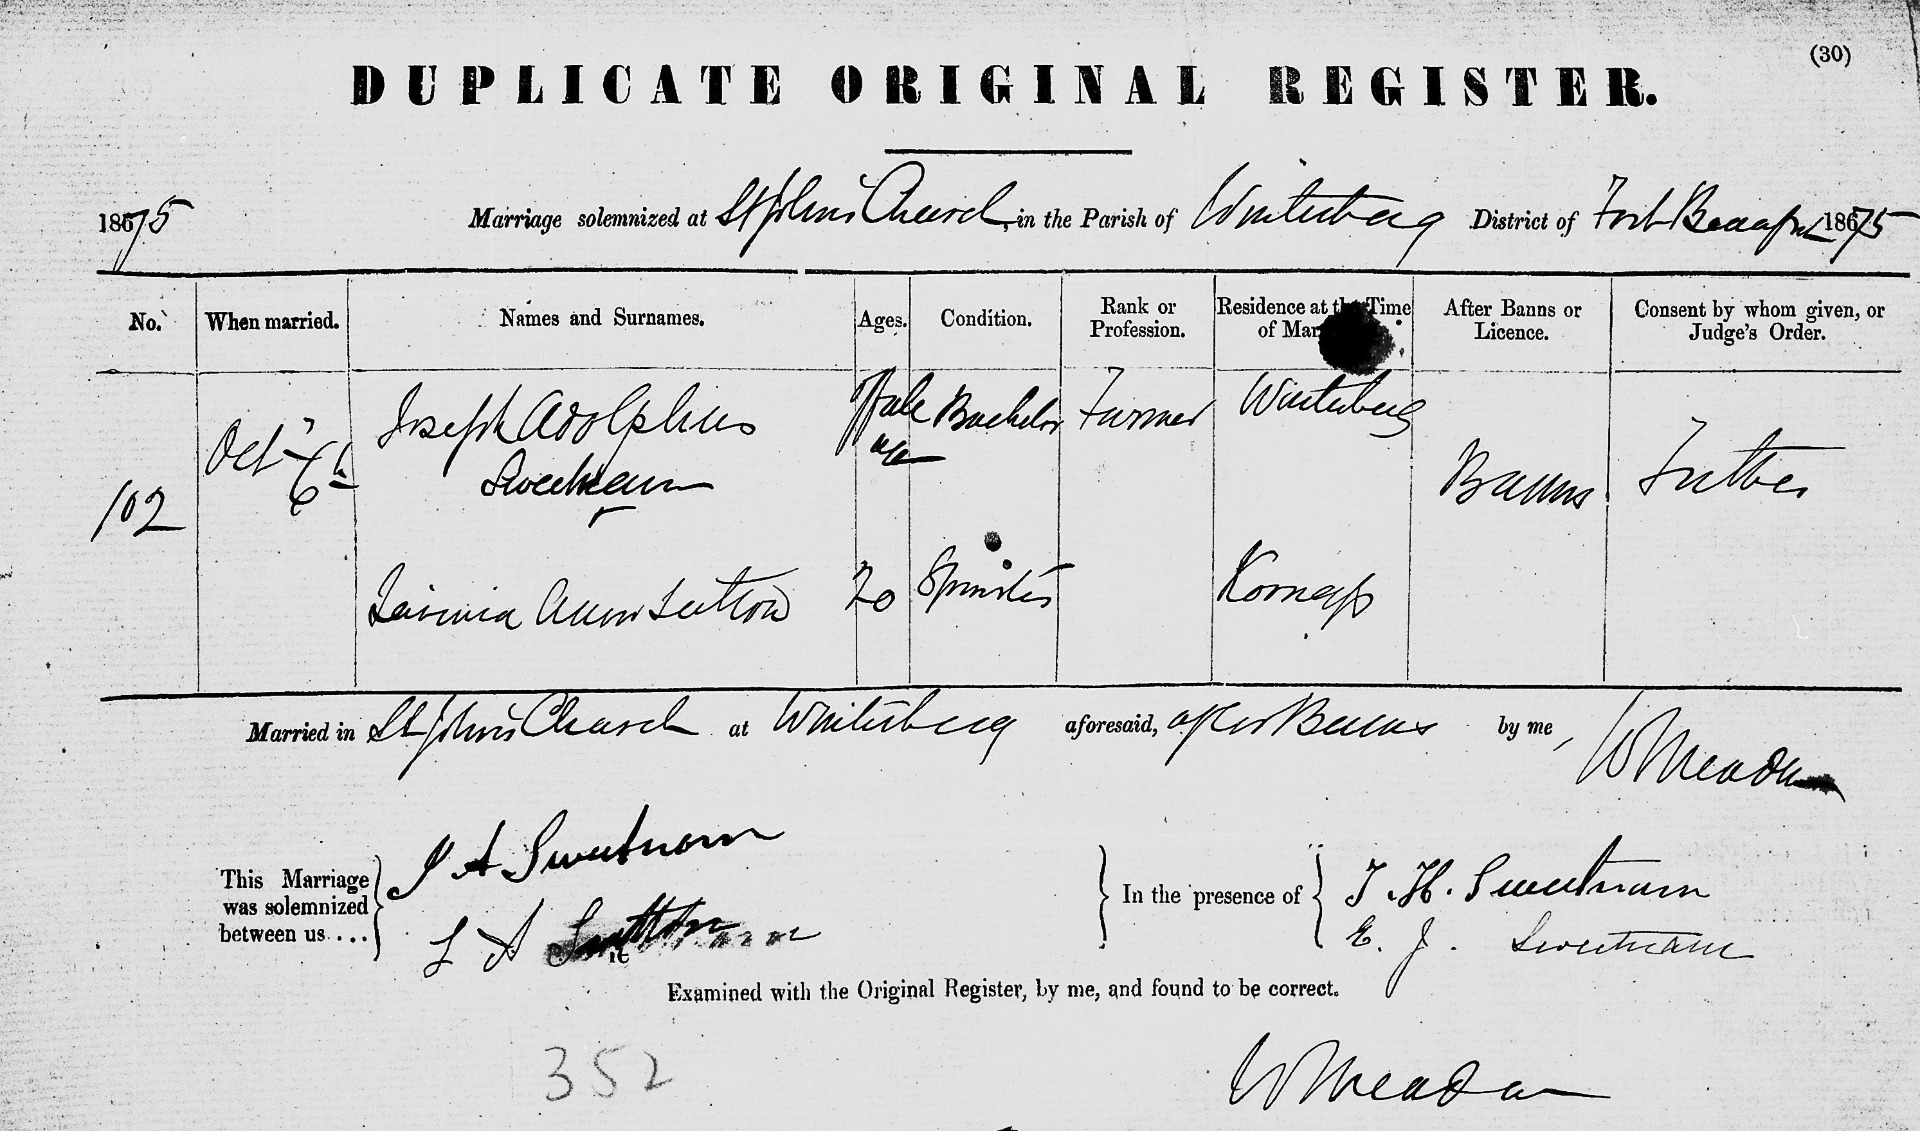 (30)
DUPLICATE ORIGINAL REGISTER.
1875 Marriage solemnized at St John's Church, in the Parish of Winterberg District of Fort Beaufort 1875
No. When married. Names and Surnames. Ages. Condition. Rank or Profession. Residence at the Time of Mar After Banns or Licence. Consent by whom given, or Judge's Order.
102 Octr 6th Joseph Adolphus Sweetnam Full age Bachelor Farmer Winterberg Banns Father
Lavinia Ann Sutton 20 Spinster
Married in St John's Church at Winterberg aforesaid, after Banns by me, W Meadon
This Marriage was solemnized between us ... J A Sweetnam
L A Sutton
In the presence of T. H. Sweetnam
E. J. Sweetnam
Examined with the Original Register, by me, and found to be correct.
352
W Meadon